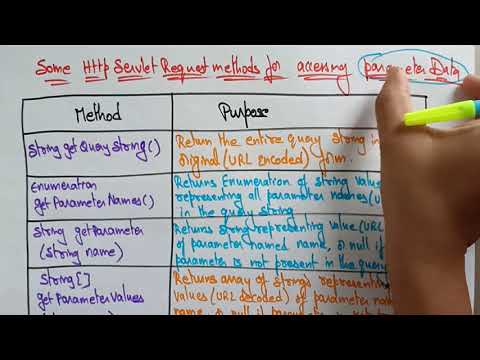 Some Http Servlet Request methods for accessing parameter Data
Method
Purpose
String getQuayString()
Return the entire quay string in
original (URL encoded) form.
Enumeration
getParameterNames()
Returns Enumeration of string value
representing all parameter names (U
in the query string
String getParameter
(String name)
Returns string representing value (UR
of parameter named name, or null if
parameter is not present in the query
String[]
getParameterValues
Returns array of strings representing
values (URL decoded) of parameter nam
name, or null if parameter